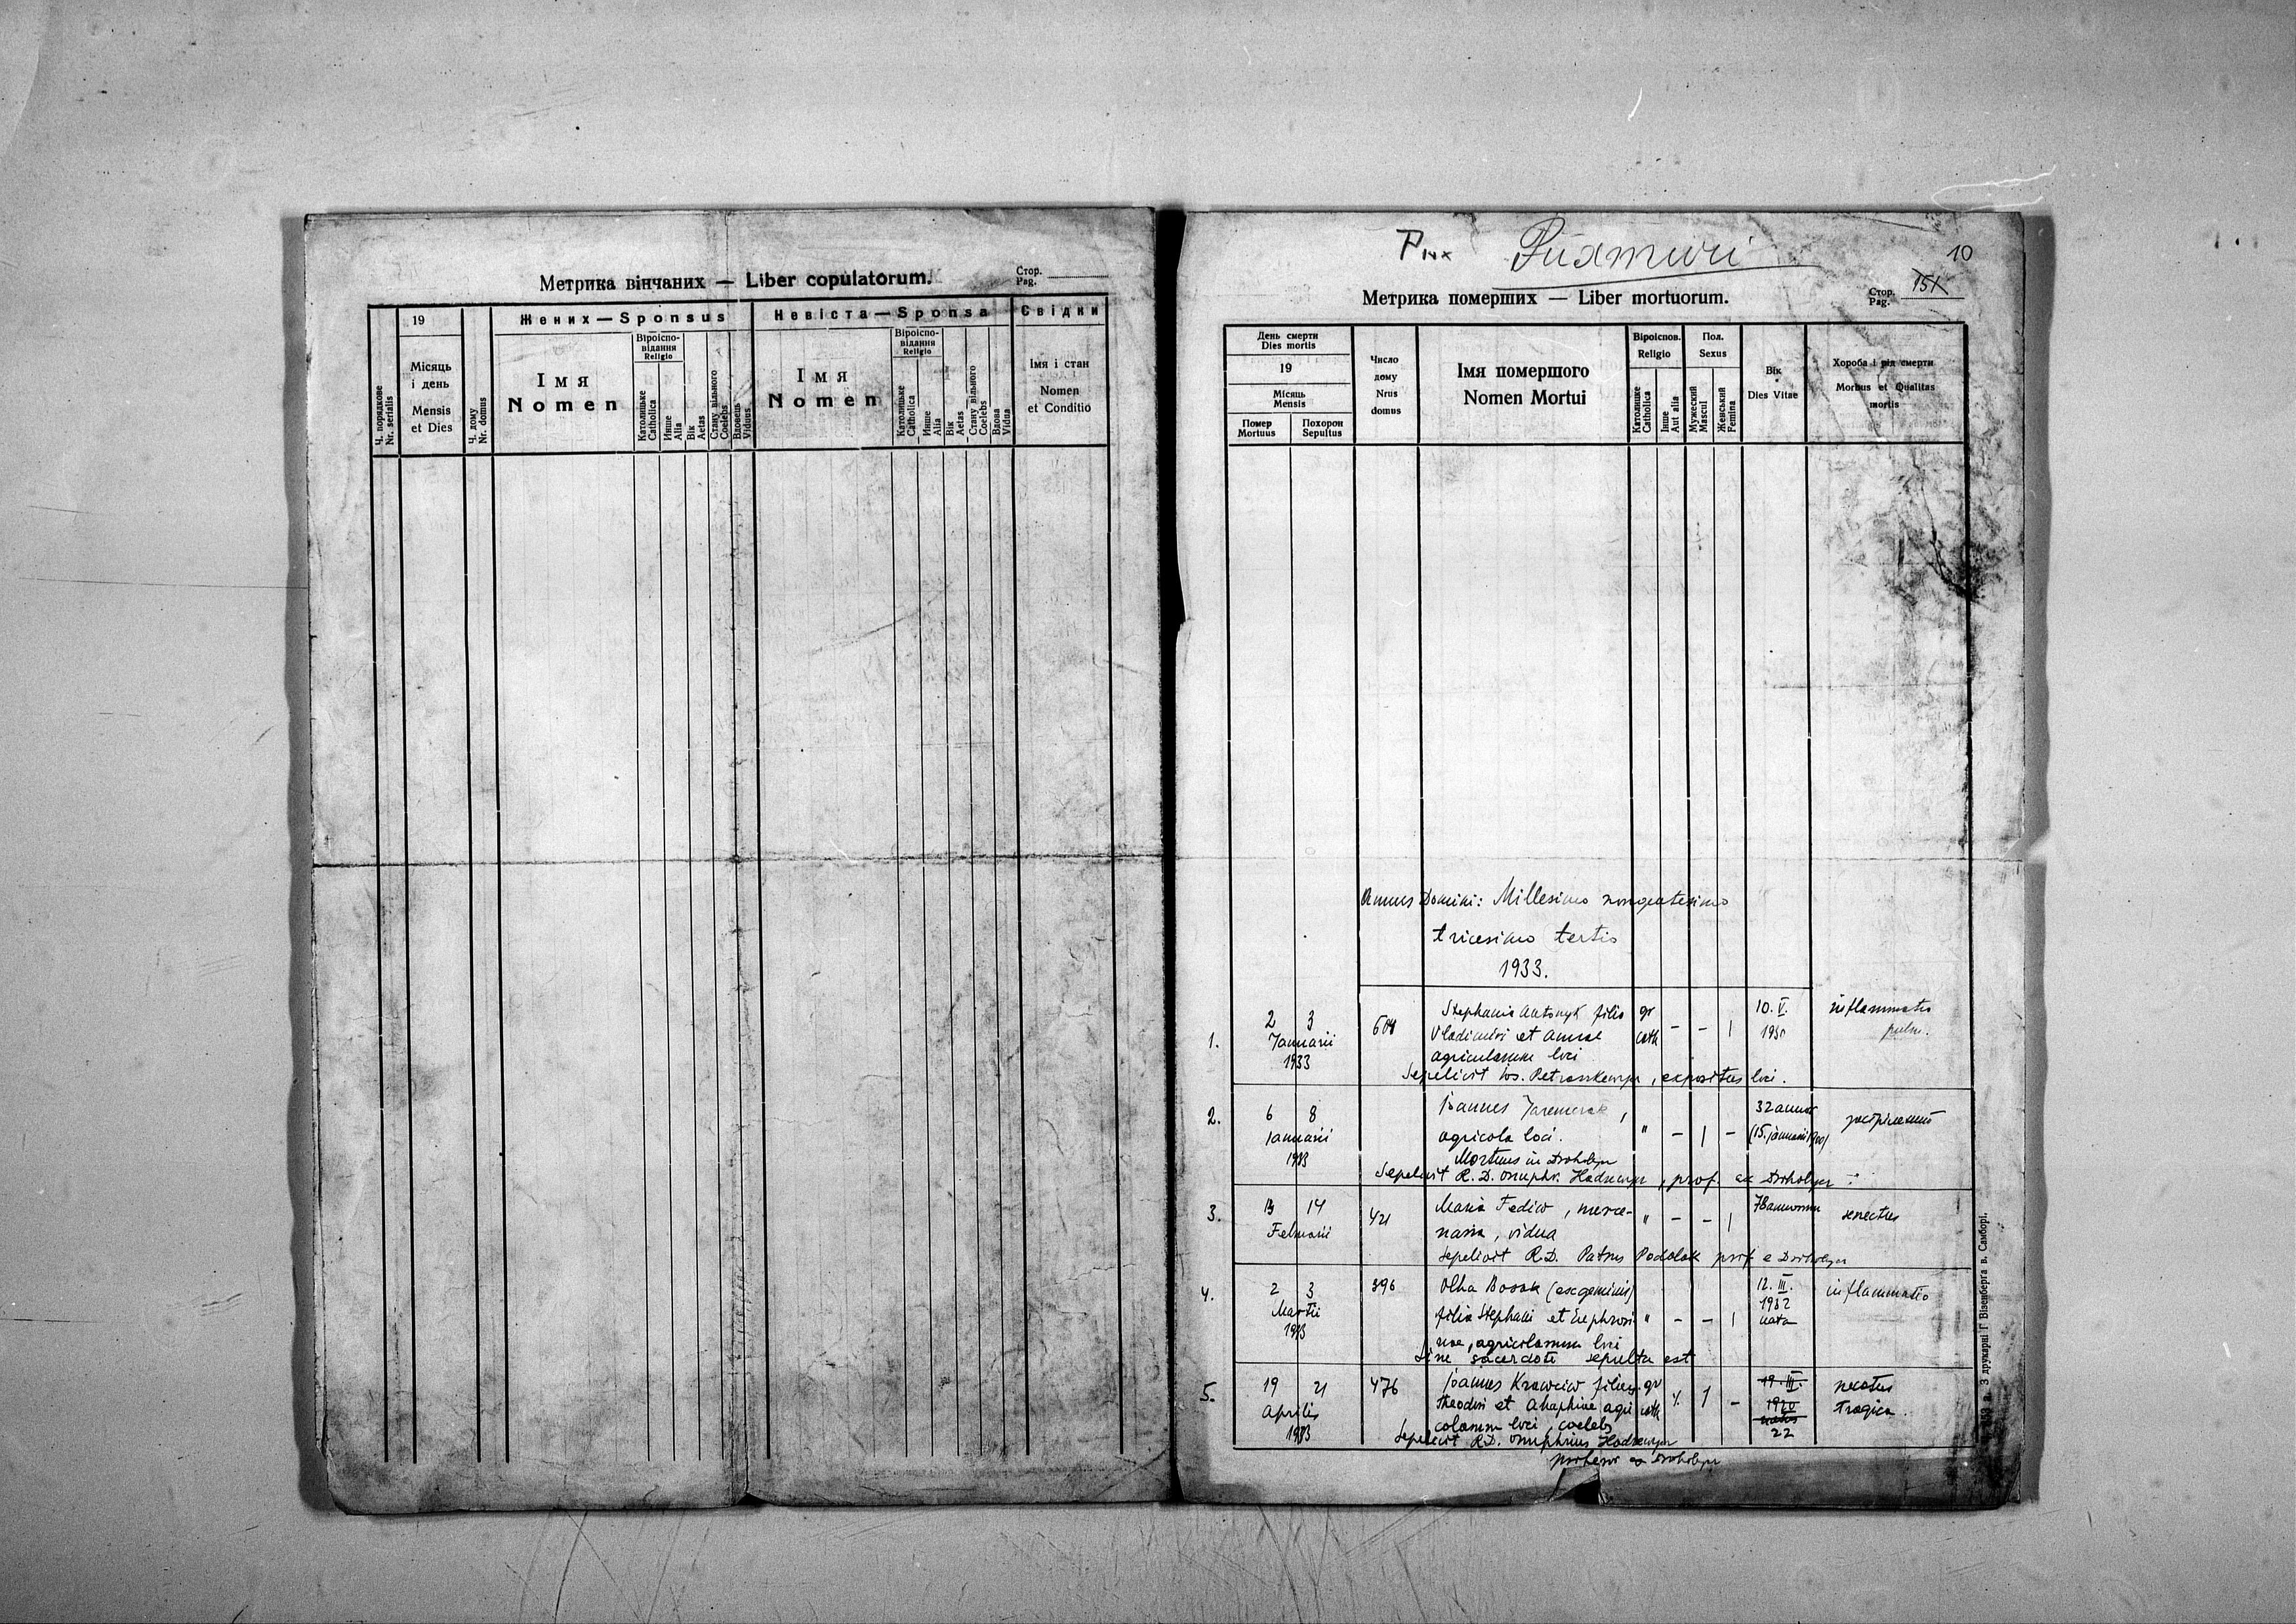 Метрика вінчаних — Liber copulatorum.
Стор.
Pag.
Ч. порядкове
Nr. serialis
19
Місяць
і день
Mensis
et Dies
Ч. дому
Nr. domus
Жених — Sponsus
Імя
Nomen
Віроіспо-
відання
Religio
Католицьке
Catholica
Инше
Alia
Вік
Aetas
Стану вільного
Coelebs
Вдовець
Viduus
Невіста — Sponsa
Імя
Nomen
Віроіспо-
відання
Religio
Католицьке
Catholica
Инше
Alia
Вік
Aetas
Стану вільного
Coelebs
Вдова
Vidua
Свідки
Імя і стан
Nomen
et Conditio
10
Метрика померших — Liber mortuorum.
Стор.
Pag.
151
День смерти
Dies mortis
19
Місяць
Mensis
Помер
Mortuus
Похорон
Sepultus
Число
дому
Nrus
domus
Імя помершого
Nomen Mortui
Віроіспов.
Religio
Католицке
Catholica
Інше
Aut alia
Пол.
Sexus
Мужеский
Mascul
Женський
Femina
Вік
Dies Vitae
Хороба і рід смерти
Morbus et Qualitas
mortis
Annus Domini: Millesimo nongentesimo
tricesimo tertio
1933.
1.
2 3
Januarii
1933
Stephania Antonyk filia
Vladimiri et Annae
agricolarum loci
Sepelivit Jos. expositus loci.
gr
cath
- - 1
10. V.
inflammatio
pulm.
2.
6 8
Januarii
1933
Joannes Jaremczak,
agricola loci.
Mortuus in Drohobycz
Sepelivit R. D. Onuphr. Hadzewycz, prof. ex Drohobycz
" - 1 -
32 annor
(15. januarii 1900)
застрілений
3.
14
Februarii
421
Maria Fediw, merce-
naria, vidua
sepelivit R.D. Petrus Podolak prof e Drohobycz
" - - 1
78 annorum
senectus
4.
2 3
Martii
1933
396
Olha Bosak (ex geminis)
filia Stephani et Euphrosi-
nae, agricolarum loci
Sine sacerdote sepulta est
" - - 1
12. III.
1932
nata
inflammatio
5.
19 21
Aprilis
1933
476
Joannes Krawciw filius
Theodori et Ahaphiae agri
colarum loci, coelebs
Sepelivit R.D. Onuphrius Hadzewycz
profesor ex Drohobycz
gr
cath
1 -
19. III.
1920
natus
22
tragica.
З друкарні Г Візенберга в. Самборі.